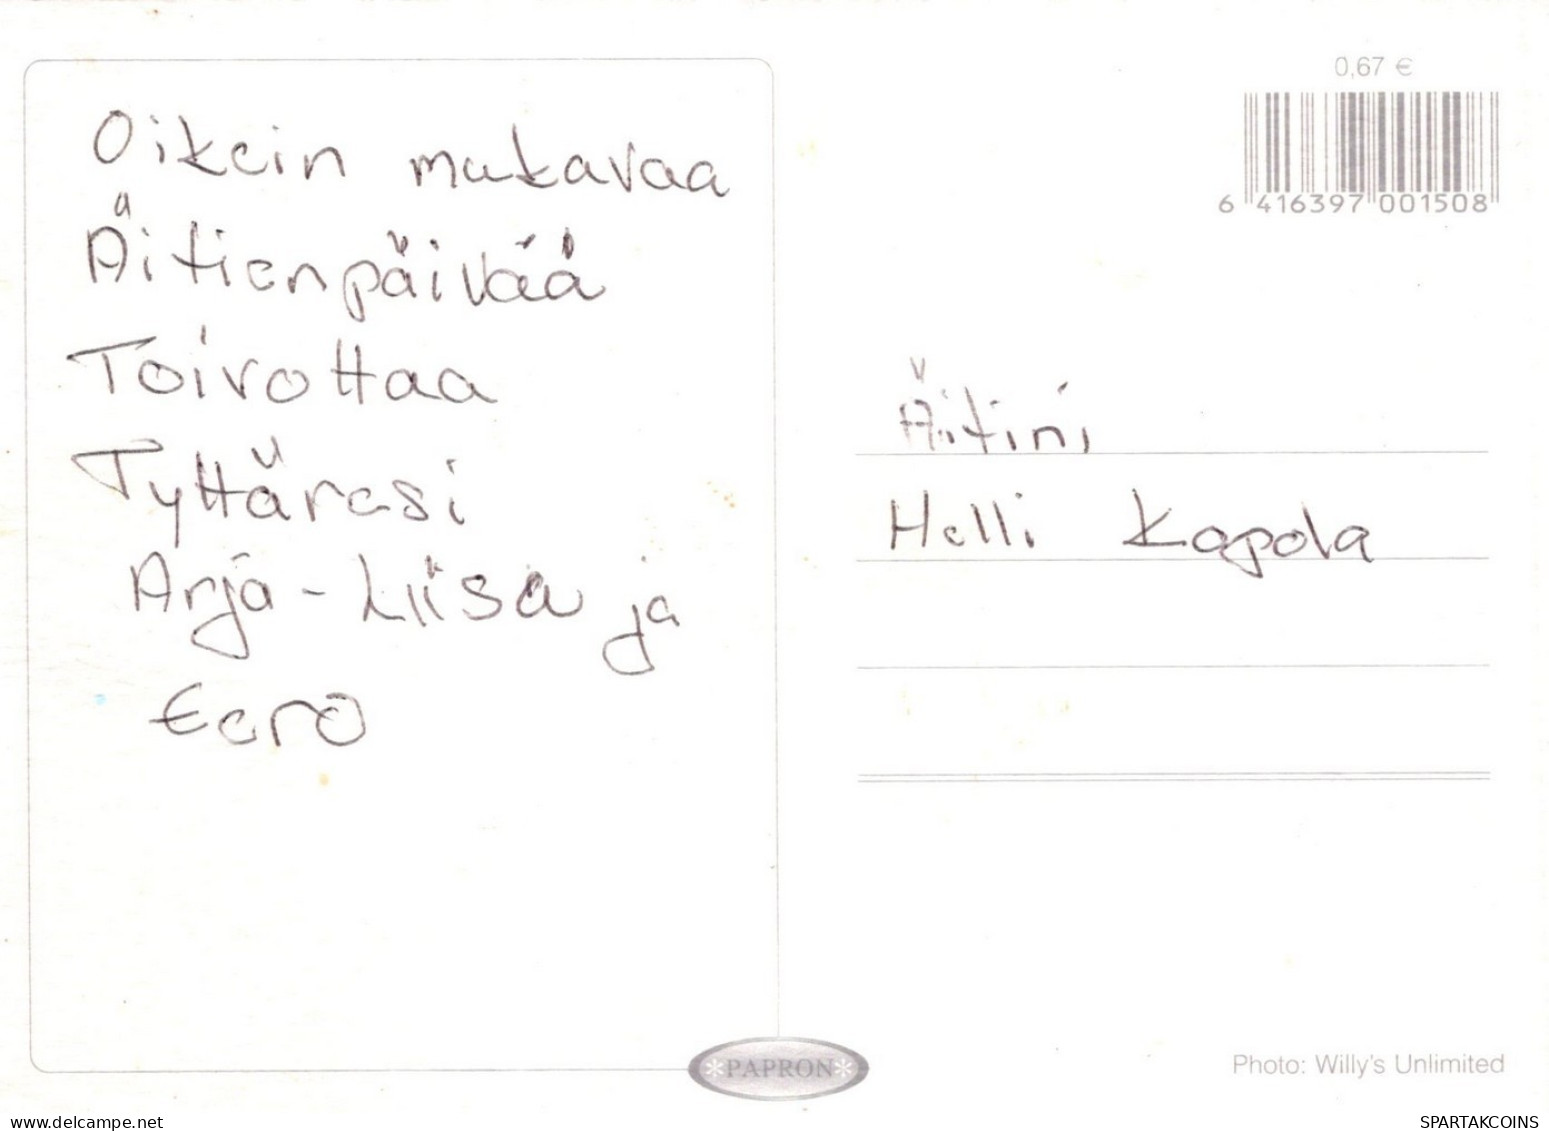 Oikein mukavaa
Äitienpäivää
Toivottaa
Tyttäresi
Arja-Liisa ja
Eero
0,67 €
6 416397 001508
Äitini
Helli Kapola
*PAPRON*
Photo: Willy's Unlimited
delcampe.net
SPARTAKCOINS